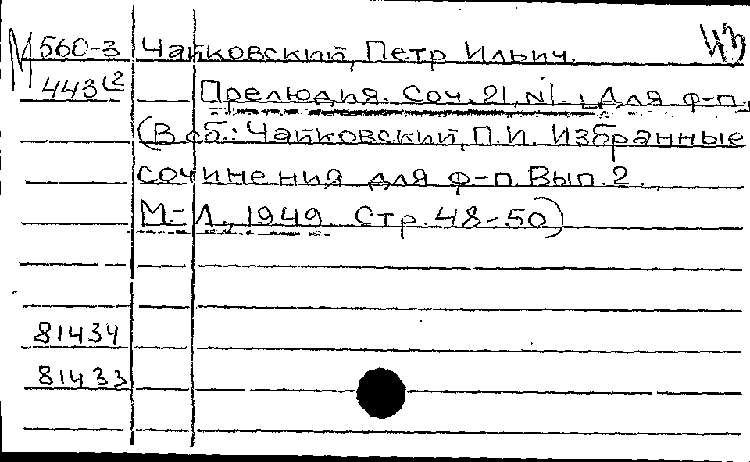 М 560-3 Чайковский, Петр Ильич.
443(2 Прелюдия. Соч. 21, №1. Для ф-п.
(В сб.: Чайковский, П.И. Избранные
сочинения для ф-п. Вып. 2.
М.-Л., 1949. Стр. 48-50)
81434
81433